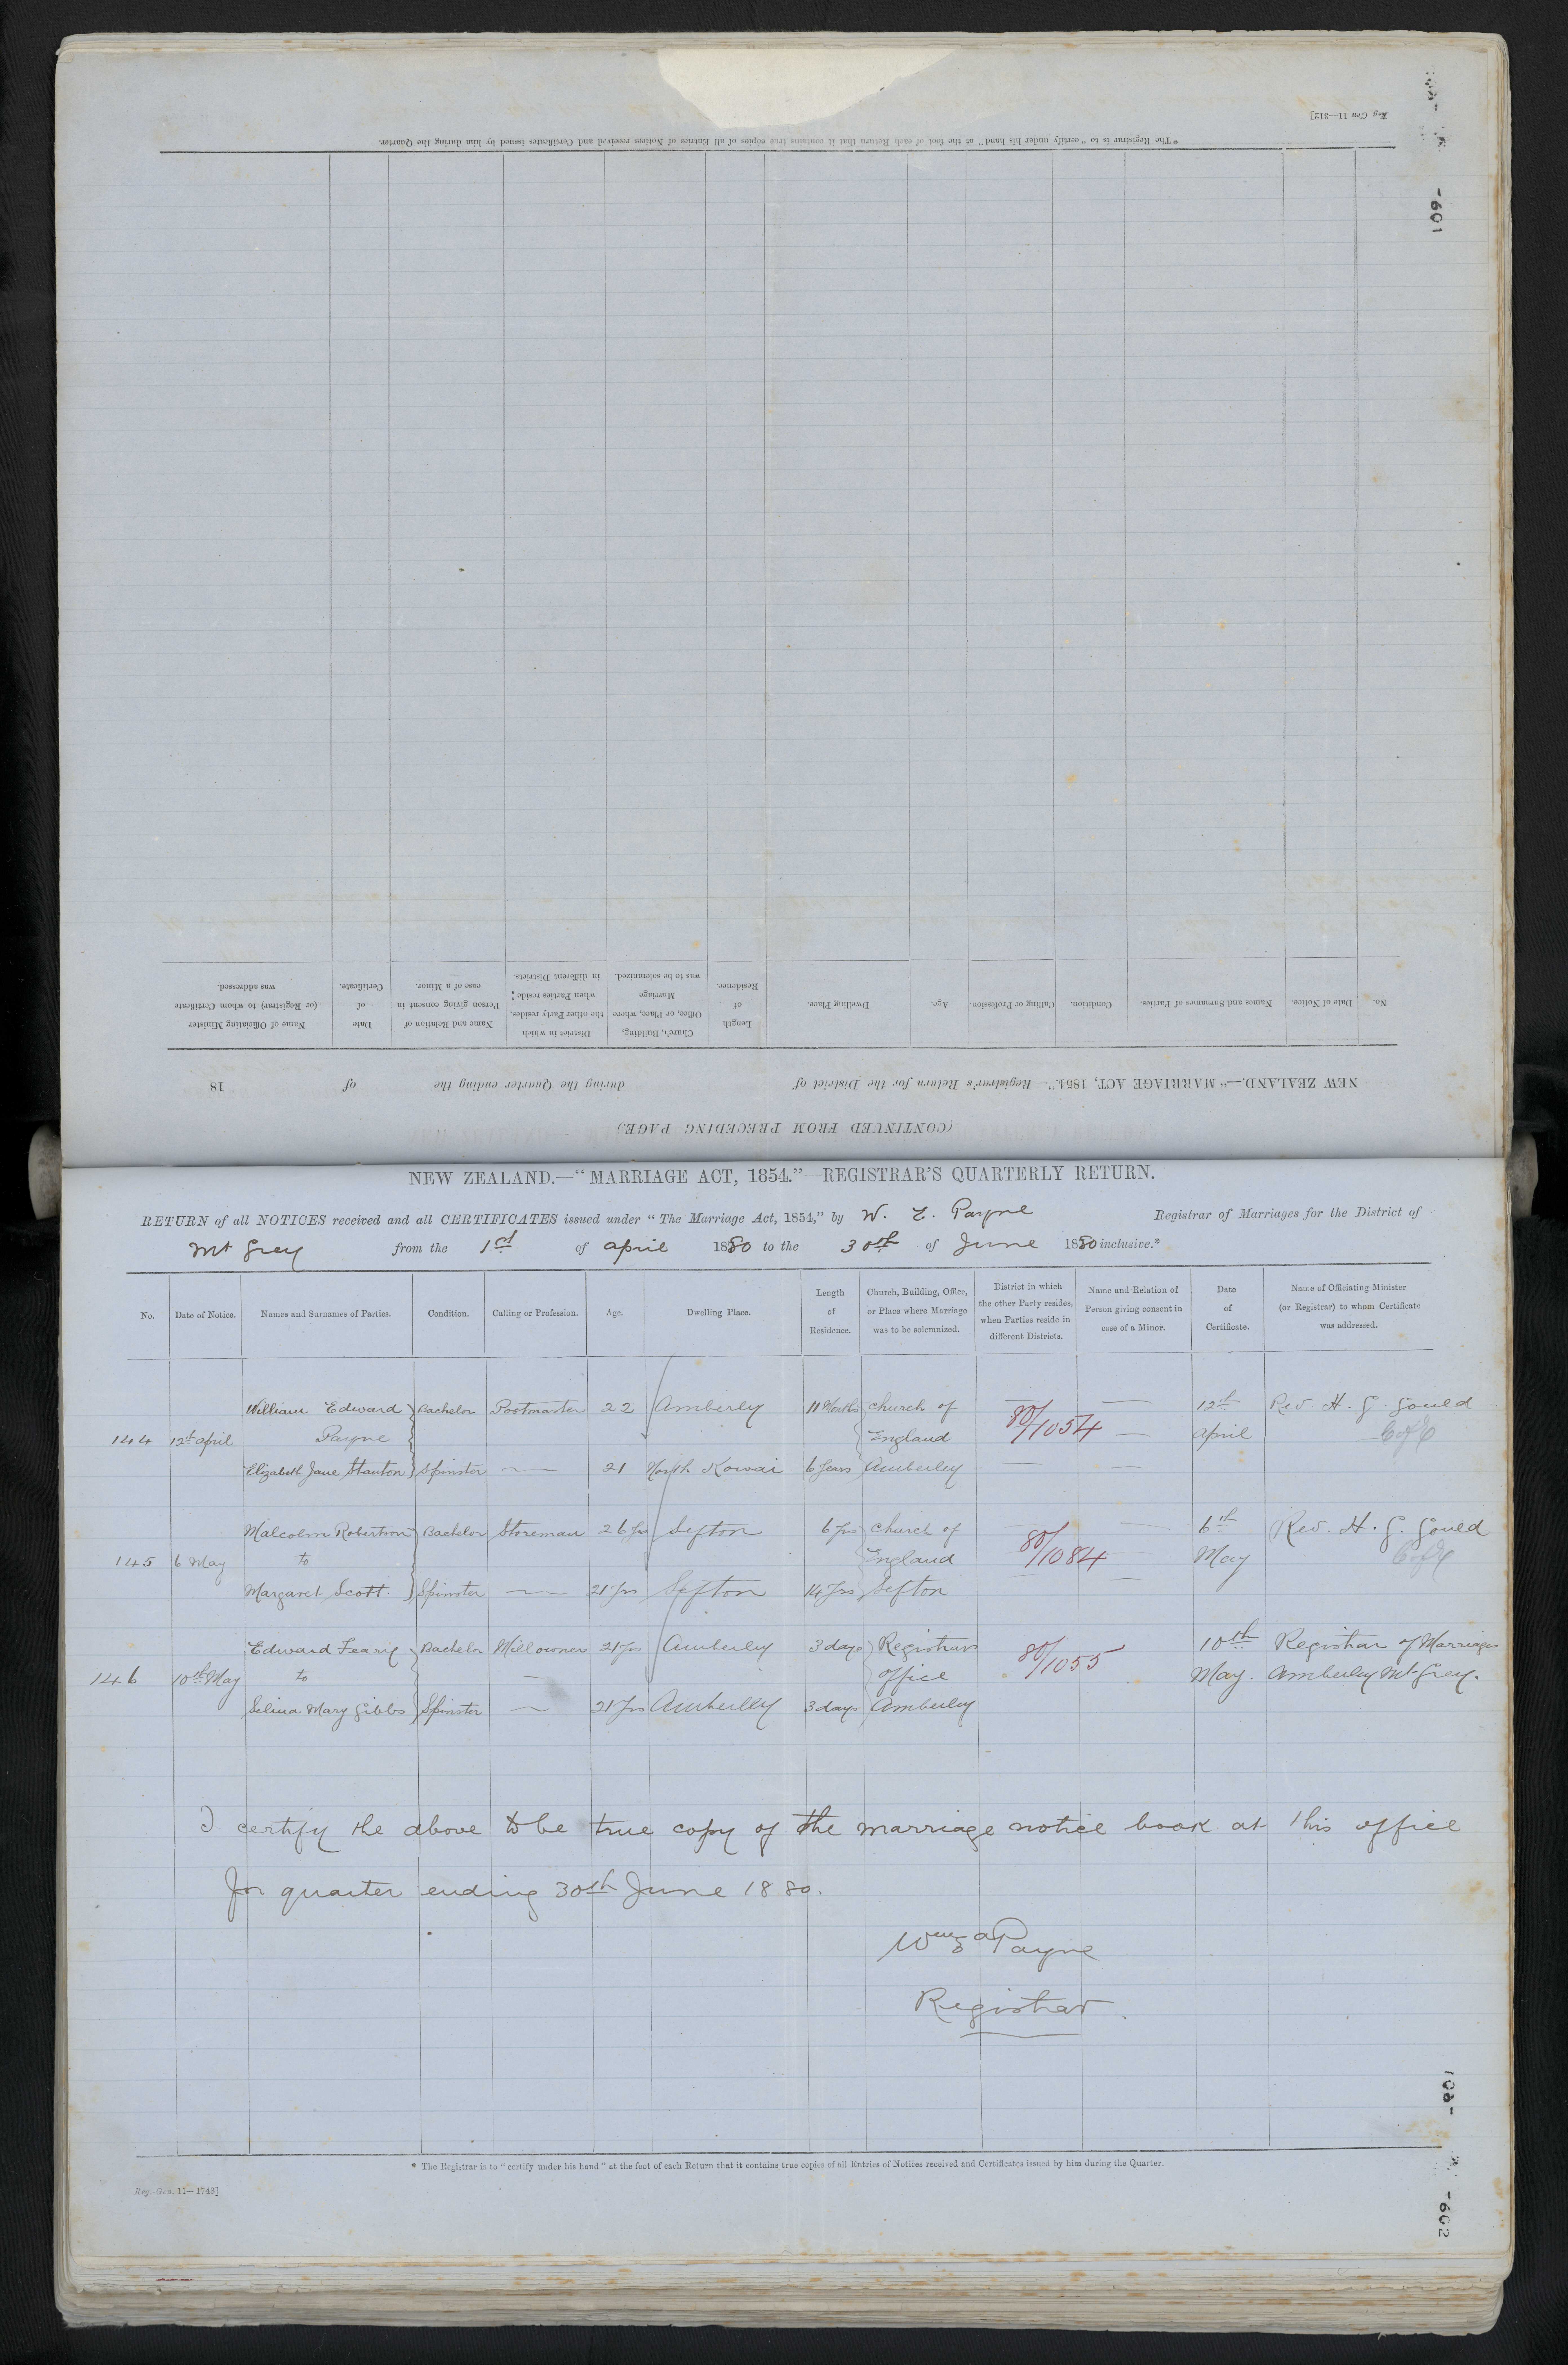 Reg. Gen 11—312]
-601
* The Registrar is to "certify under his hand" at the foot of each Return that it contains true copies of all Entries of Notices received and Certificates issued by him during the Quarter.
No.
Date of Notice.
Names and Surnames of Parties.
Condition.
Calling or Profession.
Age.
Dwelling Place.
Length
of
Residence.
Church, Building,
Office, or Place, where
Marriage
was to be solemnized.
District in which
the other Party resides,
when Parties reside
in different Districts.
Name and Relation of
Person giving consent in
case of a Minor.
Date
of
Certificate.
Name of Officiating Minister
(or Registrar) to whom Certificate
was addressed.
NEW ZEALAND.—"MARRIAGE ACT, 1854."—Registrar's Return for the District of during the Quarter ending the of 18
(CONTINUED FROM PRECEDING PAGE)
NEW ZEALAND.—"MARRIAGE ACT, 1854."—REGISTRAR'S QUARTERLY RETURN.
RETURN of all NOTICES received and all CERTIFICATES issued under "The Marriage Act, 1854," by W. E. Payne Registrar of Marriages for the District of
Mt Grey from the 1st of april 1880 to the 30th of June 1880 inclusive.*
No.
Date of Notice.
Names and Surnames of Parties.
Condition.
Calling or Profession.
Age.
Dwelling Place.
Length
of
Residence.
Church, Building, Office,
or Place where Marriage
was to be solemnized.
District in which
the other Party resides,
when Parties reside in
different Districts.
Name and Relation of
Person giving consent in
case of a Minor.
Date
of
Certificate.
Name of Officiating Minister
(or Registrar) to whom Certificate
was addressed.
William Edward Bachelor Postmaster 22 Amberley 11 Months Church of — — 12th Rev. H. G. Gould
144 12th april Payne England 80/1054 — april C of E
Elizabeth Jane Stanton Spinster — 21 North Kowai 6 Years Amberley — —
Malcolm Robertson Bachelor Storeman 26 yrs Sefton 6 yrs Church of — 6th Rev. H. G. Gould
145 6 May to England 80/1084 — May C of E
Margaret Scott Spinster — 21 yrs Sefton 14 yrs Sefton —
Edward Feary Bachelor Mill owner 21 yrs Amberley 3 days Registrars 80/1055 10th Registrar of Marriages
146 10th May to — office May. Amberley Mt Grey.
Selina Mary Gibbs Spinster — 21 yrs Amberley 3 days Amberley
I certify the above to be true copy of the marriage notice book at this office
for quarter ending 30th June 1880.
Wm E Payne
Registrar
* The Registrar is to "certify under his hand" at the foot of each Return that it contains true copies of all Entries of Notices received and Certificates issued by him during the Quarter.
Reg.-Gen. 11—1743]
-602